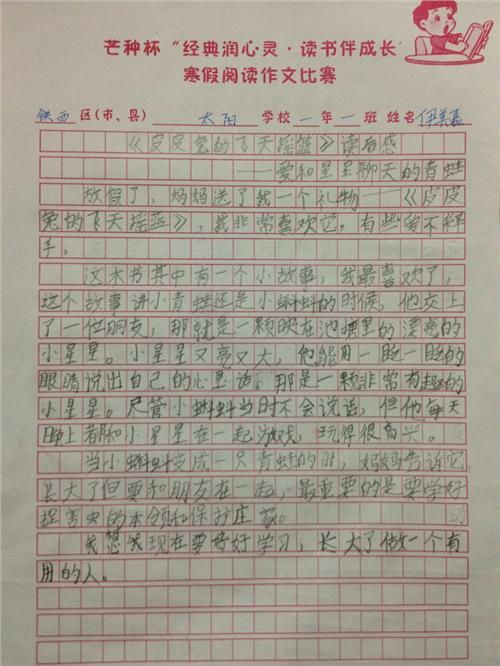 芒种杯“经典润心灵·读书伴成长”
寒假阅读作文比赛
铁西区(市、县)太阳学校一年一班 姓名伊美嘉
《皮皮兔的飞天摇篮》读后感
——爱和星星聊天的青蛙
放假了，妈妈送了我一个礼物——《皮皮
兔的飞天摇篮》，我非常喜欢它，有些爱不释
手。
这本书其中有一个小故事，我最喜欢了，
这个故事讲小青蛙还是小蝌蚪的时候，他交上
了一位朋友，那就是一颗映在池塘里的漂亮的
小星星。小星星又亮又大，他能用一眨一眨的
眼睛说出自己的心里话，那是一颗非常有趣的
小星星。尽管小蝌蚪当时不会说话，但他每天
晚上都和小星星在一起游戏，玩得很高兴。
当小蝌蚪变成一只青蛙的时，妈妈告诉它，
长大了但要和朋友在一起，最重要的是要学好
捉害虫的本领和保护庄家。
我想我现在要好好学习，长大了做一个有
用的人。